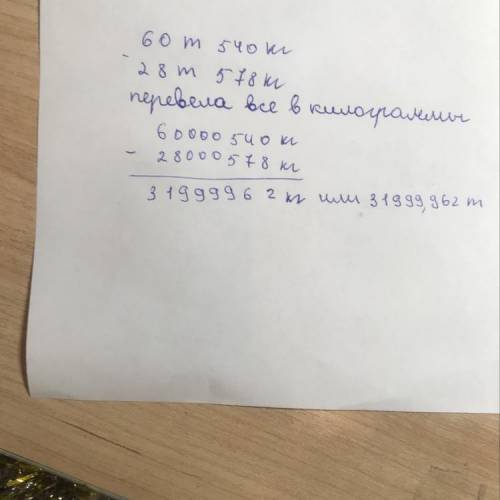 60 т 540 кг
-
28 т 578 кг
перевела все в килограммы
60000540 кг
- 28000578 кг
31999962 кг или 31999,962 т